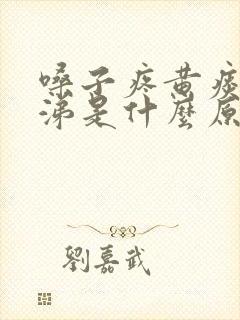 嗓子疼黄痰
涕是什麼原
劉嘉武